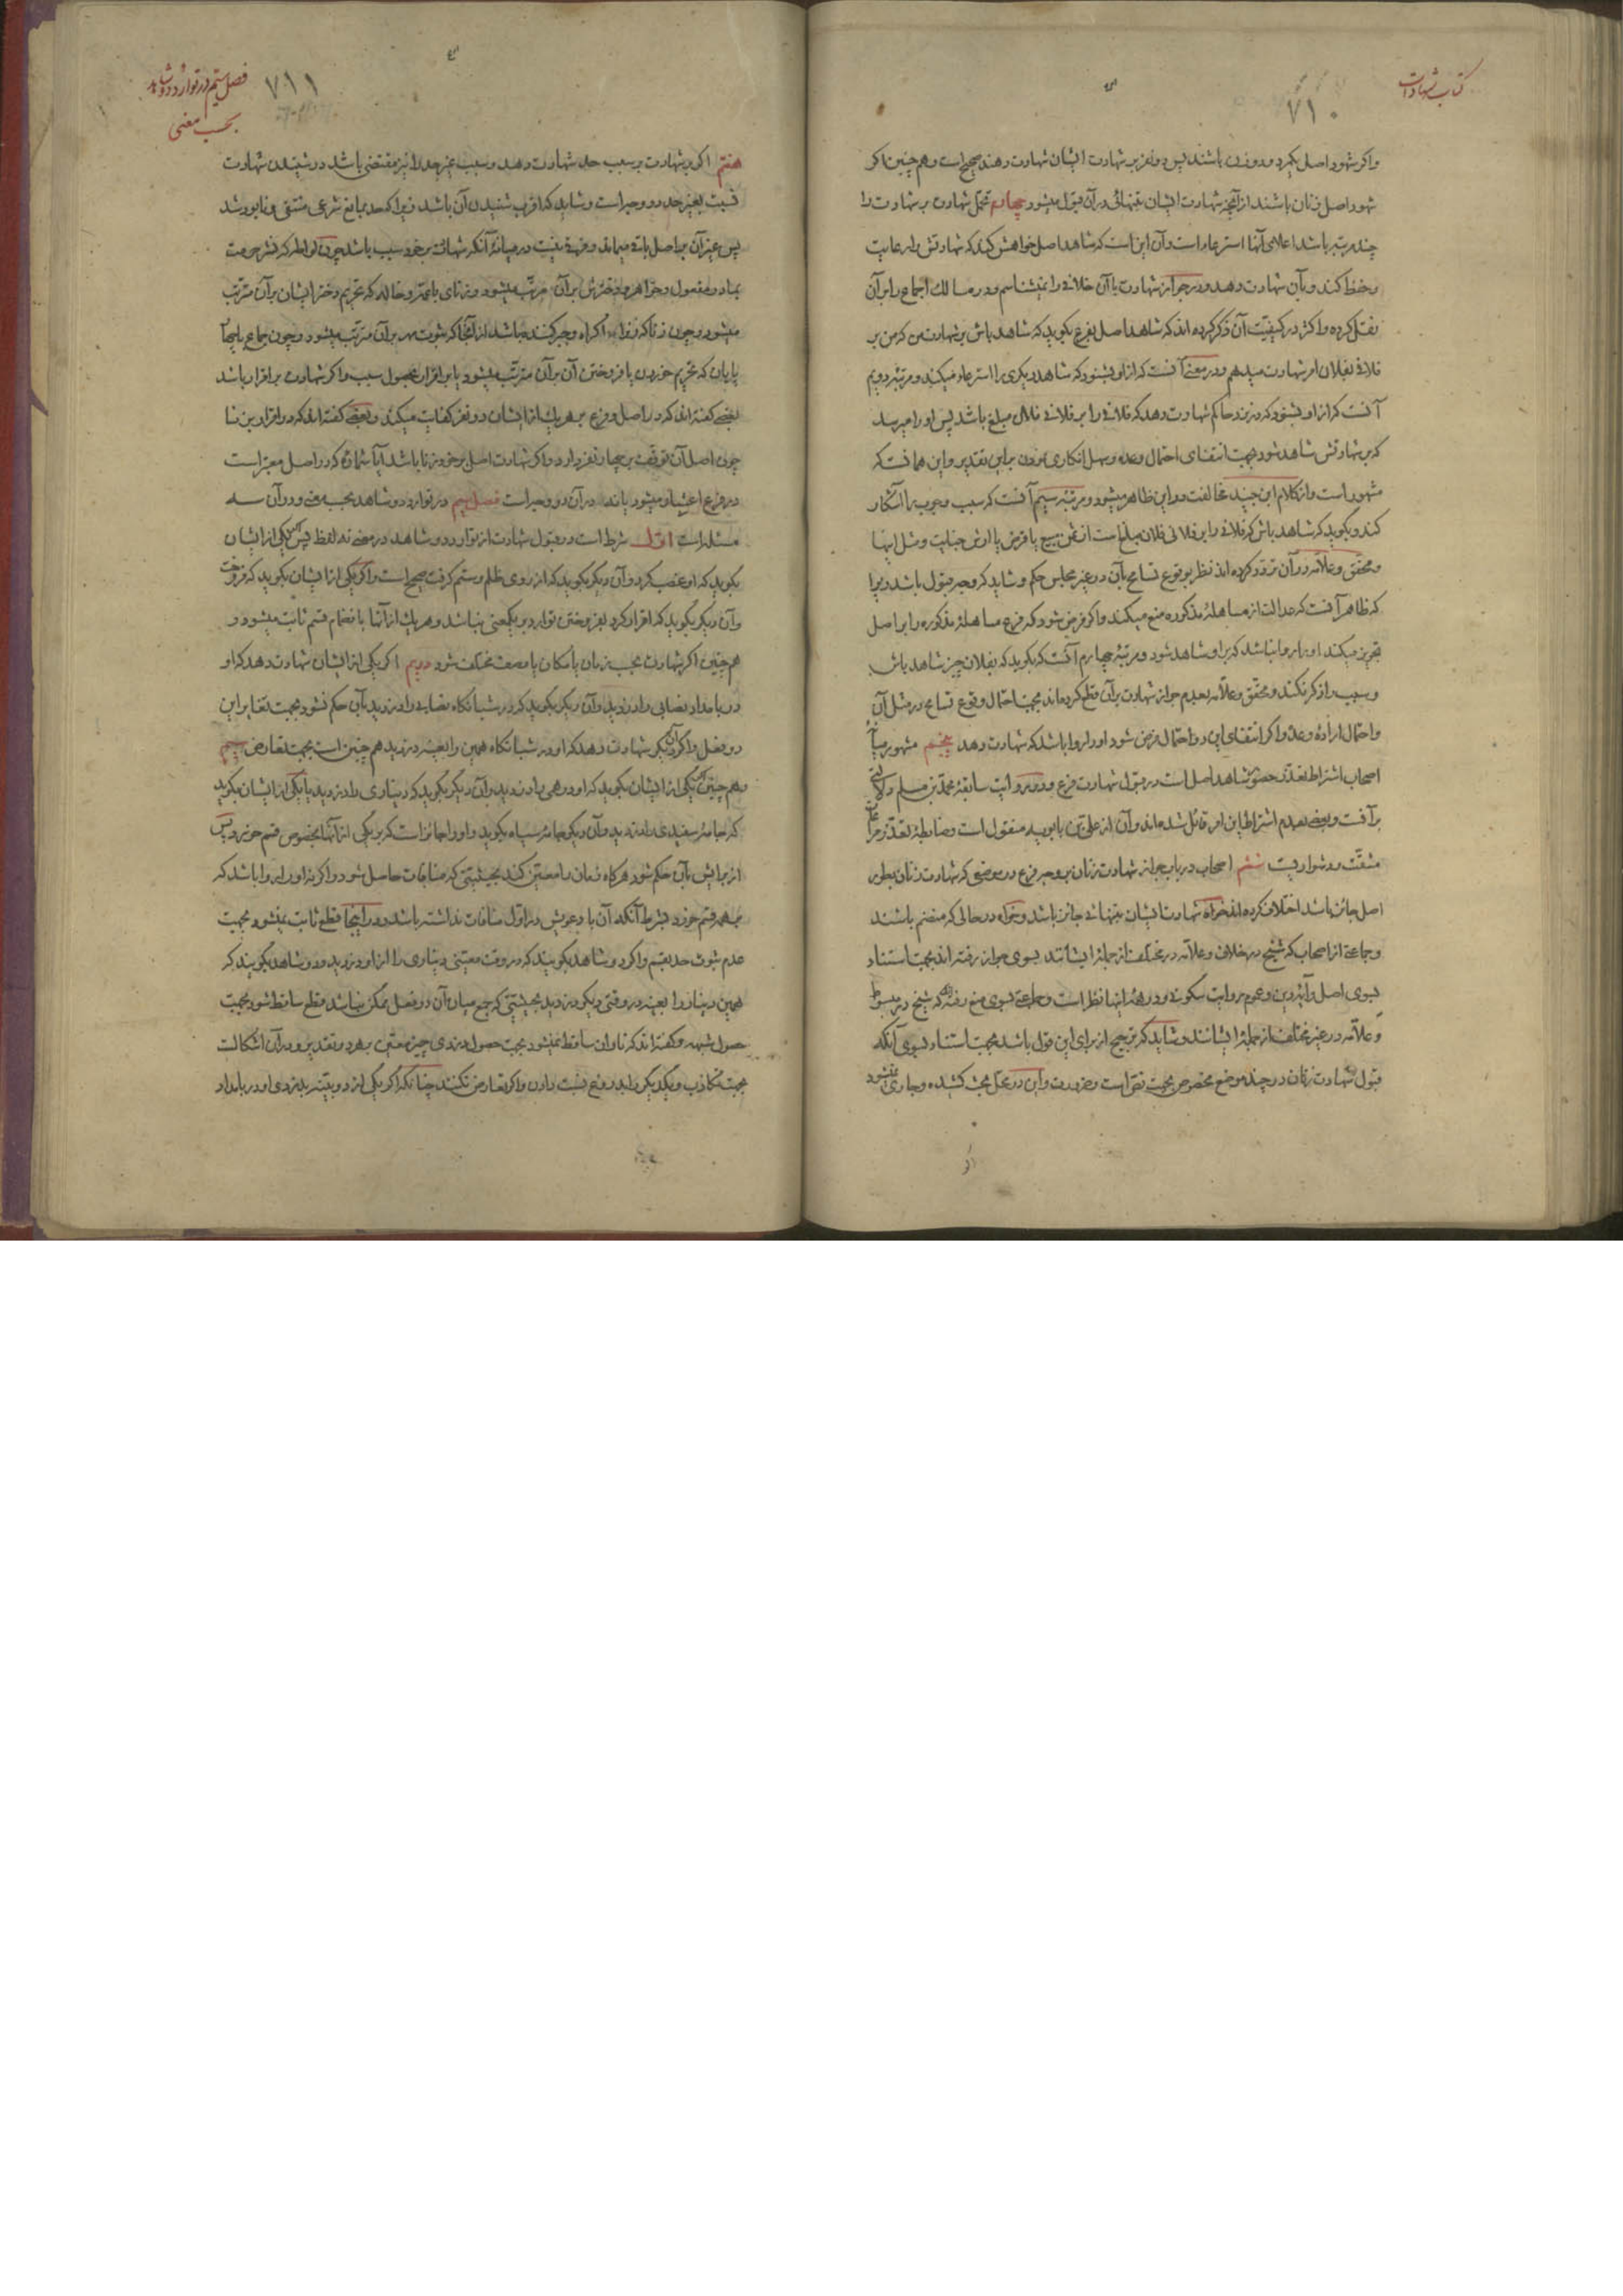 کتاب شهادات
۷۱۰
واکر شهود اصل یکمرد و دو زن باشند پس دو نفر بر شهادت ایشان شهادت دهند صحیح است و هم چنین اکر
شهود اصل زنان باشند از آنچه شهادت ایشان بتنهائی در آن قبول میشود چهارم تحمل شهادت بر شهادت را
چند مرتبه باشد اعلای آنها استرعاء است و آن این است که شاهد اصل خواهش کند که شهادتش را رعایت
و حفظ کند و بآن شهادت دهد و در جواز شهادت با آن خلافی را نمیشناسم و در مسالک اجماع را بر آن
نقل کرده و اکثر در کیفیت آن ذکر کرده اند که شاهد اصل بفرع بکوید که شاهد باش بر شهادت من که من بر
فلانی بفلان امر شهادت میدهم و در معنی آنست که از او بشنود که شاهد دیکری را استرعاء میکند و مرتبه دویم
آنست که از او بشنود که در نزد حاکم شهادت دهد که فلانی را بر فلانی فلان مبلغ باشد پس او را میرسد
که بر شهادتش شاهد شود بجهت انتفای احتمال وعده و سهل انکاری نمودن بر این تقدیر و این همانست که
مشهور است و از کلام ابن جنید مخالفت در این ظاهر میشود و مرتبه سیم آنست که سبب وجوب را آشکار
کند و بکوید که شاهد باش که فلانی را بر فلانی فلان مبلغ است از ثمن مبیع یا قرض یا ارش جنایت و مثل اینها
و محقق و علامه در آن تردد کرده اند نظر بوقوع تسامح بآن در غیر مجلس حکم و شاید که وجه قبول باشد زیرا
که ظاهر آنست که عدالت از مساهله مذکوره منع میکند و اکر فرض شود که فرع مساهله مذکوره را بر اصل
تجویز میکند او را روا نباشد که بر او شاهد شود و مرتبه چهارم آنست که بکوید که بفلان چیز شاهد باش
و سبب را ذکر نکند و محقق و علامه بعدم جواز شهادت بر آن قطع کرده اند بجهت احتمال وقوع تسامح در مثل آن
و احتمال اراده وعده و اکر انتفای این دو احتمال فرض شود او را روا باشد که شهادت دهد پنجم مشهور میان
اصحاب اشتراط تعذر حضور شاهد اصل است در قبول شهادت فرع و در روایت سابقه محمد بن مسلم دلالتی
بر آنست و بعضی بعدم اشتراط این امر قائل شده اند و آن از علی بن بابویه منقول است و ضابطه تعذر مراعات
مشقت و دشواریست ششم اصحاب در باب جواز شهادت زنان بر وجه فرع در موضعی که شهادت زنان بطور
اصل جائز باشد اختلاف کرده اند خواه شهادت ایشان بتنهائی جائز باشد و خواه در حالی که منضم باشند
و جماعتی از اصحاب که شیخ در خلاف و علامه در مختلف از جمله ایشانند بسوی جواز رفته اند بجهت استناد
بسوی اصل و آیه دین و عموم روایت سکونی و در همه اینها نظر است و جماعتی بسوی منع رفته اند که شیخ در مبسوط
و علامه در غیر مختلف از جمله ایشانند و شاید که ترجیح از برای این قول باشد بجهت استناد بسوی آنکه
قبول شهادت زنان در چند موضع مخصوص بجهت نص است و ضرورت و این در محل بحث کشیده و جاری نمیشود
فصل بیستم در توارد دو شاهد
بحسب معنی
۷۱۱
هفتم اکر بر شهادت بر سبب حد شهادت دهد و سبب غیر حد را نیز مقتضی باشد در شنیدن شهادت
نسبت بغیر حد دو وجه است و شاید که اقرب شنیدن آن باشد زیرا که حد بمانع شرعی منتفی و نابود شد
پس غیر آن بر اصل باقی میماند و فرقی نیست در میانه آنکه شهادت بر خود سبب باشد چون لواط که نشر حرمت
بمادر مفعول و خواهر و دخترش بر آن مرتب میشود و زنای با عمه و خاله که تحریم دختر ایشان بر آن مترتب
میشود و چون زنا که زن را اکراه و جبر کننده باشد از آنجا که ثبوت مهر بر آن مترتب میشود و چون جماع با چها
رپایان که تحریم خوردن یا فروختن آن بر آن مترتب میشود یا بر اقرار بحصول سبب و اکر شهادت بر اقرار باشد
بعضی کفته اند که در اصل و فرع بر هر یک از ایشان دو نفر کفایت میکند و بعضی کفته اند که در اقرار بزنا
چون اصل آن توقف بر چهار نفر دارد و اکر شهادت اصل بر خود زنا باشد آیا شماره که در اصل معتبر است
در فرع اعتبار میشود یا نه در آن دو وجه است فصل بیستم در توارد دو شاهد بحسب معنی و در آن سه
مسئله است اول شرط است در قبول شهادت از توارد دو شاهد در معنی نه لفظ پس اکر یکی از ایشان
بکوید که او غصب کرد و آن دیکر بکوید که از روی ظلم و ستم کرفت صحیح است و اکر یکی از ایشان بکوید که فروخت
و آن دیکر بکوید که اقرار کرد بفروختن توارد بر یکمعنی نباشد و هر یک از آنها با نضمام قسم ثابت میشود و
هم چنین اکر شهادت بحسب زمان یا مکان یا وصف مختلف شود دویم اکر یکی از ایشان شهادت دهد که او
در بامداد نصابی را دزدید و آن دیکر بکوید که در شبانکاه نصابی را دزدید بآن حکم نشود بجهت تغایر این
دو فعل و اکر آن دیکر شهادت دهد که او در شبانکاه همین را بعینه دزدید هم چنین است بجهت تعارض سیم
و هم چنین اکر یکی از ایشان بکوید که او درهمی را دزدید و آن دیکر بکوید که دیناری را دزدید یا یکی از ایشان بکوید
که جامه سفیدی را دزدید و آن دیکر جامه سیاه بکوید و او را جائز است که بر یکی از آنها بخصوص قسم خورد پس
از برایش بآن حکم شود هر کاه زمان را معین کند بحیثیتی که منافات حاصل شود و اکر نه او را روا باشد که
بهر دو قسم خورد بشرط آنکه آن با دعویش در اول منافات نداشته باشد و در اینجا قطع ثابت نمیشود بجهت
عدم ثبوت حد بقسم و اکر دو شاهد بکویند که در وقت معینی دیناری را از او دزدید و دو شاهد بکویند که
همین دینار را بعینه در وقتی دیکر دزدید بحیثیتی که جمع میان آن دو فعل ممکن نباشد قطع ساقط شود بجهت
حصول شبهه و کفته اند که تاوان ساقط نمیشود بجهت حصول دزدی چیز معین بهر دو تقدیر و در آن اشکالست
بجهت تکاذب و یکدیکر را بدروغ نسبت دادن و اکر تعارض نکنند چنانکه اکر یکی از دو بینه بدزدی او در بامداد